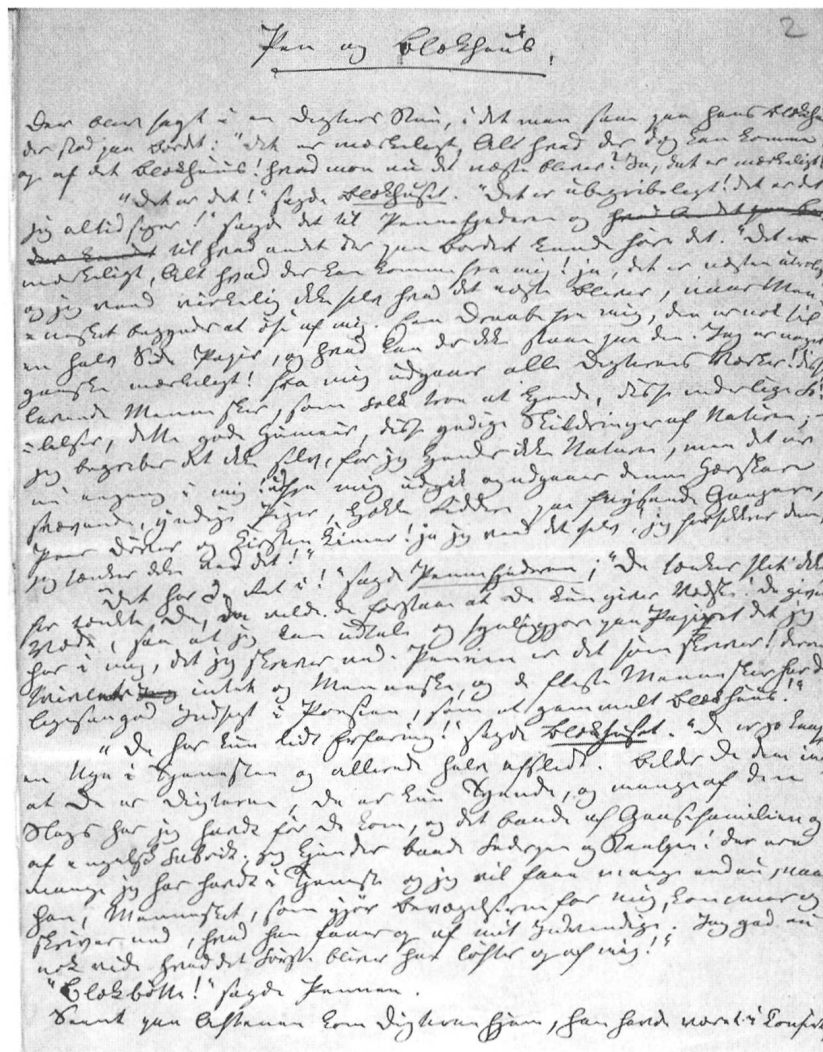 2
Pen og Blækhuus.
Der blev sagt i en Digters Stue, idet man saae paa hans Blækhu
der stod paa Bordet: "det er mærkeligt, Alt hvad der dog kan komme
op af det Blækhuus! hvad mon nu det næste bliver? Ja, det er mærkeligt
"Det er det!" sagde Blækhuset. "Det er ubegribeligt! det er det
jeg altid siger!" sagde det til Pennefjederen og
til hvad andet der paa Bordet kunde høre det. "Det er
mærkeligt, Alt hvad der kan komme fra mig! ja, det er næsten utroligt
og jeg veed virkelig ikke selv hvad det næste bliver, naar Men-
nesket begynder at øse af mig. Een Draabe fra mig, den er nok til
en halv Side Papir, og hvad kan der ikke staae paa den. Jeg er noget
ganske mærkeligt! fra mig udgaaer alle Digterens Værker! disse
levende Mennesker, som Folk troe at kjende, disse inderlige Fø-
lelser, dette gode Humeur, disse yndige Skildringer af Naturen;
jeg begriber det ikke selv, for jeg kjender ikke Naturen, men det er
nu engang i mig! fra mig udgik og udgaaer denne Hærskare
svævende, yndige Piger, kjække Riddere paa fnysende Gangere,
Peer Døver og Kirsten Kimer! ja jeg veed det selv! jeg forsikkrer dem,
jeg tænker ikke ved det!"
"Det har De Ret i!" sagde Pennefjederen; "De tænker slet ikke
for tænkte De, da vilde De forstaae at De kun giver Vædske! De giver
Væde, saa at jeg kan udtale og synliggjøre paa Papiret det jeg
har i mig, det jeg skriver ned. Pennen er det som skriver! derom
tvivler intet Menneske, og de fleste Mennesker har da
ligesaa god Indsigt i Poesien, som et gammelt Blækhuus!"
"De har kun lidt Erfaring!" sagde Blækhuset. "De er jo knap
en Uge i Tjenesten og allerede halv opslidt. Bilder De dem ind
at De er Digteren, De er kun Tyende, og mange af den
Slags har jeg havdt før De kom, og det baade af Gaasefamilien og
af engelsk Fabrik; jeg kjender baade Fjerpen og Staalpen! der ere
mange jeg har havdt i Tjeneste og jeg vil faae mange endnu, naar
han, Mennesket, som gjør Bevægelsen for mig, kommer og
skriver ned, hvad han faaer op af mit Indvendige. Jeg gad nu
nok vide hvad det Første bliver han løfter op af mig!"
"Blækbøtte!" sagde Pennen.
Seent paa Aftenen kom Digteren hjem, han havde været i Concert